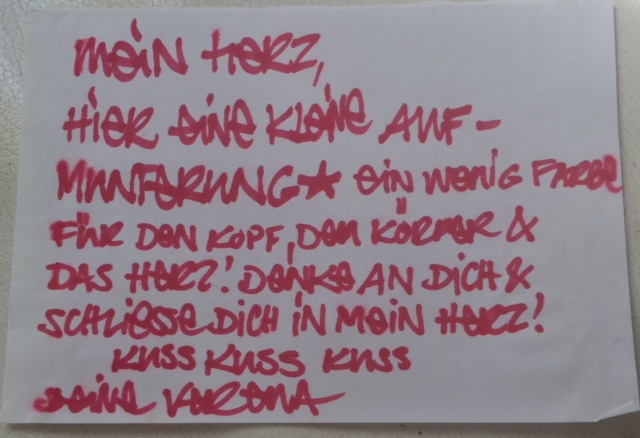 MEIN HERZ,
HIER EINE KLEINE AUF-
MUNTERUNG★ EIN WENIG FARBE
FÜR DEN KOPF, DEN KÖRPER &
DAS HERZ! DENKE AN DICH &
SCHLIESSE DICH IN MEIN HERZ!
KUSS KUSS KUSS
DEINE VERENA